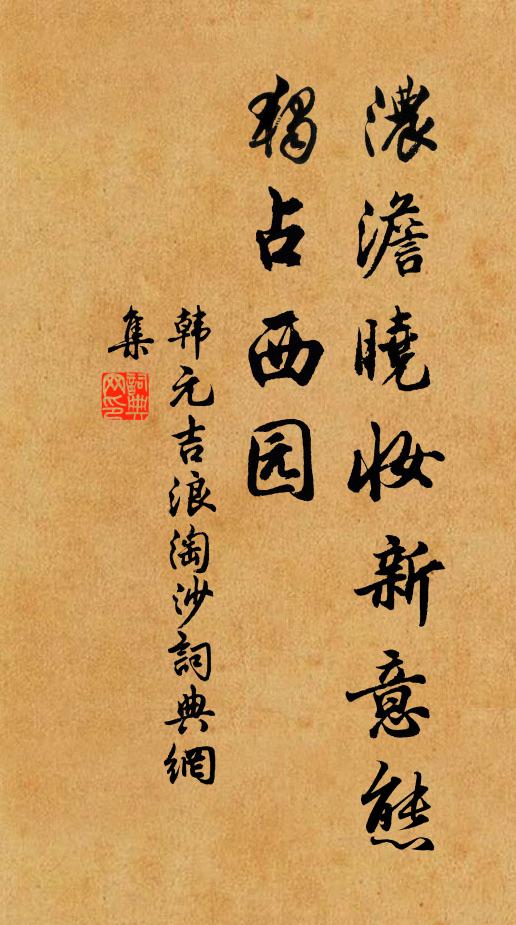 濃澹曉妝新意態
独占西园
韩元吉浪淘沙詞典網
集
詞典网印